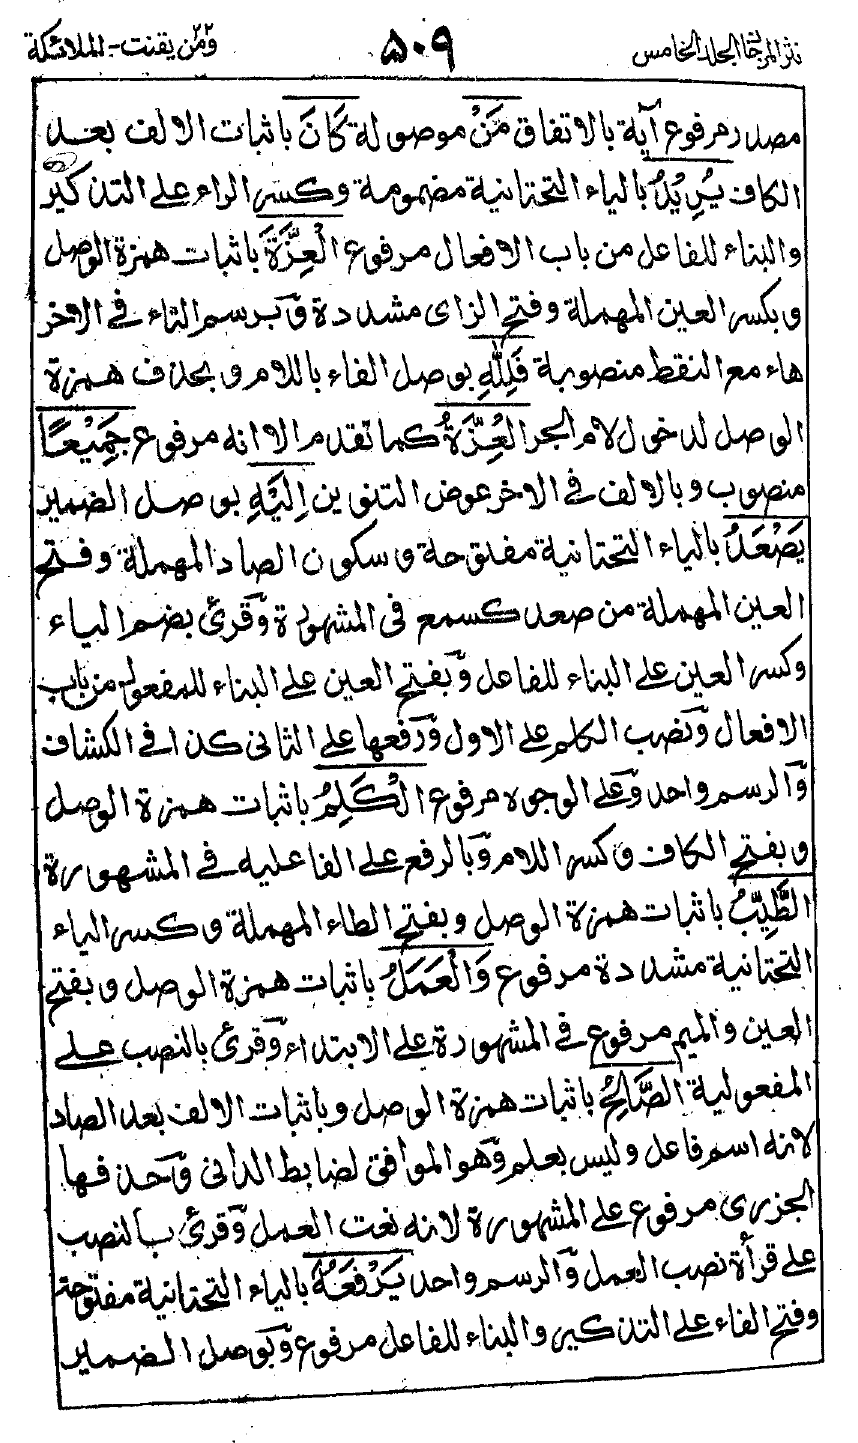 نثر المرجان المجلد الخامس ۵۰۹ ومن يقنت ۲۲- الملائكة
مصدر مرفوع آية بالاتفاق مَنْ موصولة كَانَ باثبات الالف بعد
الكاف يُرِيْدُ بالياء التحتانية مضمومة وكسر الراء على التذكير
والبناء للفاعل من باب الافعال مرفوع الْعِزَّةَ باثبات همزة الوصل
وبكسر العين المهملة وفتح الزاى مشددة وبرسم التاء فى الاخر
هاء مع النقط منصوبة فَلِلّٰهِ بوصل الفاء باللام وبحذف همزة
الوصل لدخول لام الجر الْعِزَّةُ كما تقدم الا انه مرفوع جَمِيْعًا
منصوب وبالالف فى الاخر عوض التنوين اِلَيْهِ بوصل الضمير
يَصْعَدُ بالياء التحتانية مفتوحة وسكون الصاد المهملة وفتح
العين المهملة من صعد كسمع فى المشهورة وقرئ بضم الياء
وكسر العين على البناء للفاعل وبفتح العين على البناء للمفعول من باب
الافعال ونصب الكلم على الاول ورفعها على الثانى كذا فى الكشاف
والرسم واحد وعلى الوجوه مرفوع الْكَلِمُ باثبات همزة الوصل
وبفتح الكاف وكسر اللام وبالرفع على الفاعليه فى المشهورة
الطَّيِّبُ باثبات همزة الوصل وبفتح الطاء المهملة وكسر الياء
التحتانية مشددة مرفوع وَالْعَمَلُ باثبات همزة الوصل وبفتح
العين والميم مرفوع فى المشهورة على الابتداء وقرئ بالنصب على
المفعولية الصَّالِحُ باثبات همزة الوصل وباثبات الالف بعد الصاد
لانه اسم فاعل وليس بعلم وهو الموافق لضابط الدانى وحذفها
الجزرى مرفوع على المشهورة لانه نعت العمل وقرئ بالنصب
على قرأة نصب العمل والرسم واحد يَرْفَعُهُ بالياء التحتانية مفتوحة
وفتح الفاء على التذكير والبناء للفاعل مرفوع وبوصل الضمير